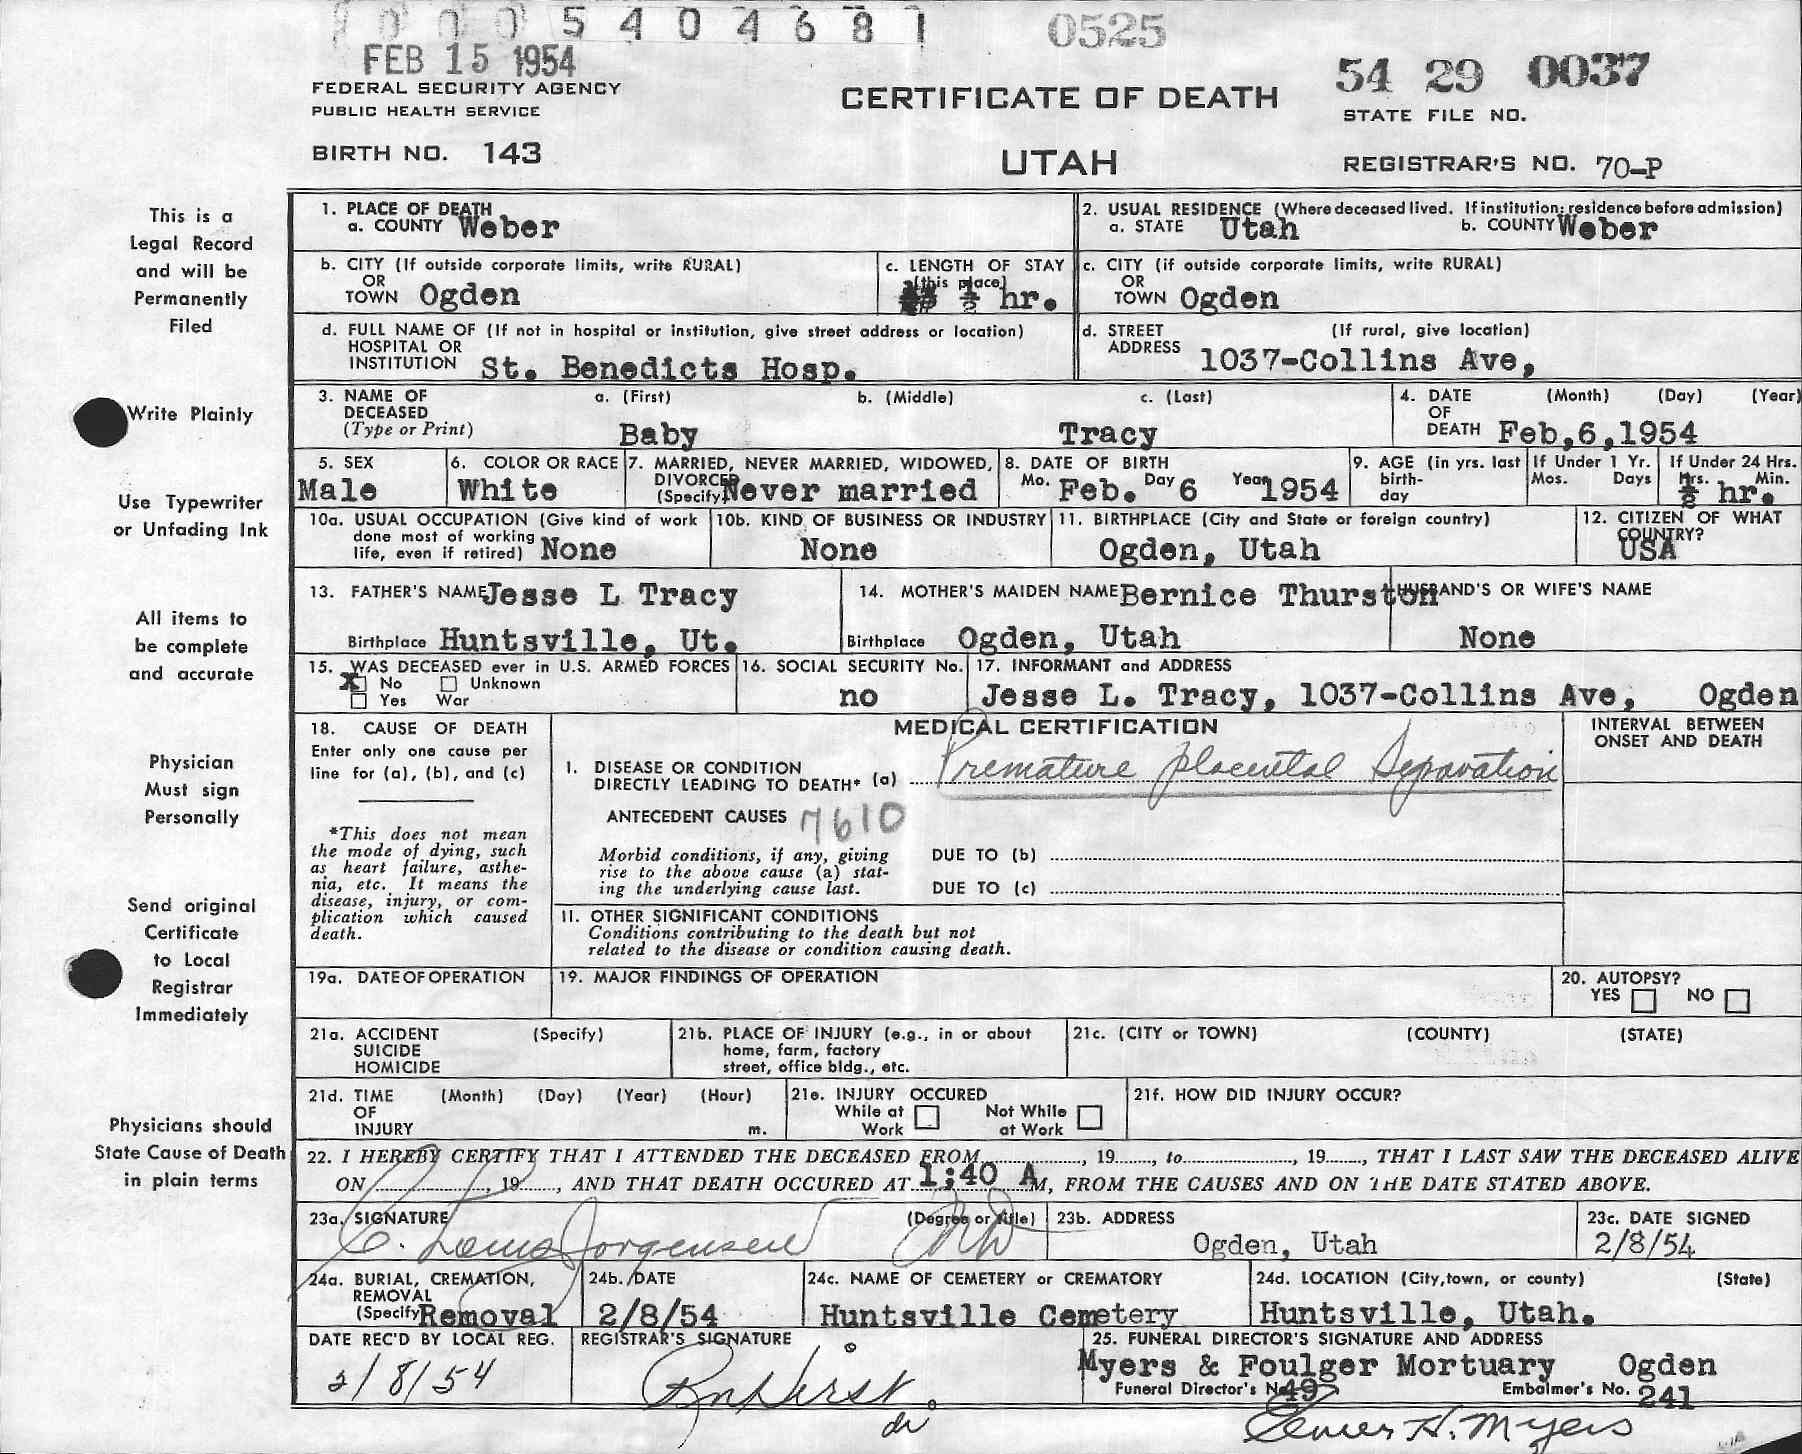 0005404681 0525
FEB 15 1954 54 29 0037
FEDERAL SECURITY AGENCY CERTIFICATE OF DEATH STATE FILE NO.
PUBLIC HEALTH SERVICE
BIRTH NO. 143 UTAH REGISTRAR'S NO. 70-P
This is a
Legal Record
and will be
Permanently
Filed
Write Plainly
Use Typewriter
or Unfading Ink
All items to
be complete
and accurate
Physician
Must sign
Personally
Send original
Certificate
to Local
Registrar
Immediately
Physicians should
State Cause of Death
in plain terms
1. PLACE OF DEATH
a. COUNTY Weber
2. USUAL RESIDENCE (Where deceased lived. If institution: residence before admission)
a. STATE Utah b. COUNTY Weber
b. CITY (If outside corporate limits, write RURAL)
OR
TOWN Ogden
c. LENGTH OF STAY
(this place)
½ hr.
c. CITY (if outside corporate limits, write RURAL)
OR
TOWN Ogden
d. FULL NAME OF (If not in hospital or institution, give street address or location)
HOSPITAL OR
INSTITUTION St. Benedicts Hosp.
d. STREET (If rural, give location)
ADDRESS 1037-Collins Ave,
3. NAME OF a. (First) b. (Middle) c. (Last)
DECEASED
(Type or Print) Baby Tracy
4. DATE (Month) (Day) (Year)
OF
DEATH Feb,6,1954
5. SEX
Male
6. COLOR OR RACE
White
7. MARRIED, NEVER MARRIED, WIDOWED,
DIVORCED
(Specify) Never married
8. DATE OF BIRTH
Mo. Feb. Day 6 Year 1954
9. AGE (in yrs. last
birth-
day
If Under 1 Yr.
Mos. Days
If Under 24 Hrs.
Hrs. Min.
½ hr.
10a. USUAL OCCUPATION (Give kind of work
done most of working
life, even if retired) None
10b. KIND OF BUSINESS OR INDUSTRY
None
11. BIRTHPLACE (City and State or foreign country)
Ogden, Utah
12. CITIZEN OF WHAT
COUNTRY?
USA
13. FATHER'S NAME Jesse L Tracy
Birthplace Huntsville, Ut.
14. MOTHER'S MAIDEN NAME Bernice Thurston
Birthplace Ogden, Utah
HUSBAND'S OR WIFE'S NAME
None
15. WAS DECEASED ever in U.S. ARMED FORCES
X No Unknown
Yes War
16. SOCIAL SECURITY No.
no
17. INFORMANT and ADDRESS
Jesse L. Tracy, 1037-Collins Ave, Ogden
18. CAUSE OF DEATH
Enter only one cause per
line for (a), (b), and (c)
*This does not mean
the mode of dying, such
as heart failure, asthe-
nia, etc. It means the
disease, injury, or com-
plication which caused
death.
MEDICAL CERTIFICATION
INTERVAL BETWEEN
ONSET AND DEATH
I. DISEASE OR CONDITION
DIRECTLY LEADING TO DEATH* (a) Premature placental Separation
ANTECEDENT CAUSES 7610
Morbid conditions, if any, giving DUE TO (b)
rise to the above cause (a) stat-
ing the underlying cause last. DUE TO (c)
II. OTHER SIGNIFICANT CONDITIONS
Conditions contributing to the death but not
related to the disease or condition causing death.
19a. DATE OF OPERATION
19. MAJOR FINDINGS OF OPERATION
20. AUTOPSY?
YES NO
21a. ACCIDENT (Specify)
SUICIDE
HOMICIDE
21b. PLACE OF INJURY (e.g., in or about
home, farm, factory
street, office bldg., etc.
21c. (CITY or TOWN) (COUNTY) (STATE)
21d. TIME (Month) (Day) (Year) (Hour)
OF
INJURY m.
21e. INJURY OCCURED
While at Not While
Work at Work
21f. HOW DID INJURY OCCUR?
22. I HEREBY CERTIFY THAT I ATTENDED THE DECEASED FROM, 19, to, 19, THAT I LAST SAW THE DECEASED ALIVE
ON, 19, AND THAT DEATH OCCURED AT 1;40 A M, FROM THE CAUSES AND ON THE DATE STATED ABOVE.
23a. SIGNATURE (Degree or title)
C. Louis Jorgensen MD
23b. ADDRESS
Ogden, Utah
23c. DATE SIGNED
2/8/54
24a. BURIAL, CREMATION,
REMOVAL
(Specify) Removal
24b. DATE
2/8/54
24c. NAME OF CEMETERY or CREMATORY
Huntsville Cemetery
24d. LOCATION (City, town, or county) (State)
Huntsville, Utah.
DATE REC'D BY LOCAL REG.
2/8/54
REGISTRAR'S SIGNATURE
25. FUNERAL DIRECTOR'S SIGNATURE AND ADDRESS
Myers & Foulger Mortuary Ogden
Funeral Director's No. 49 Embalmer's No. 241
Elmer H. Myers